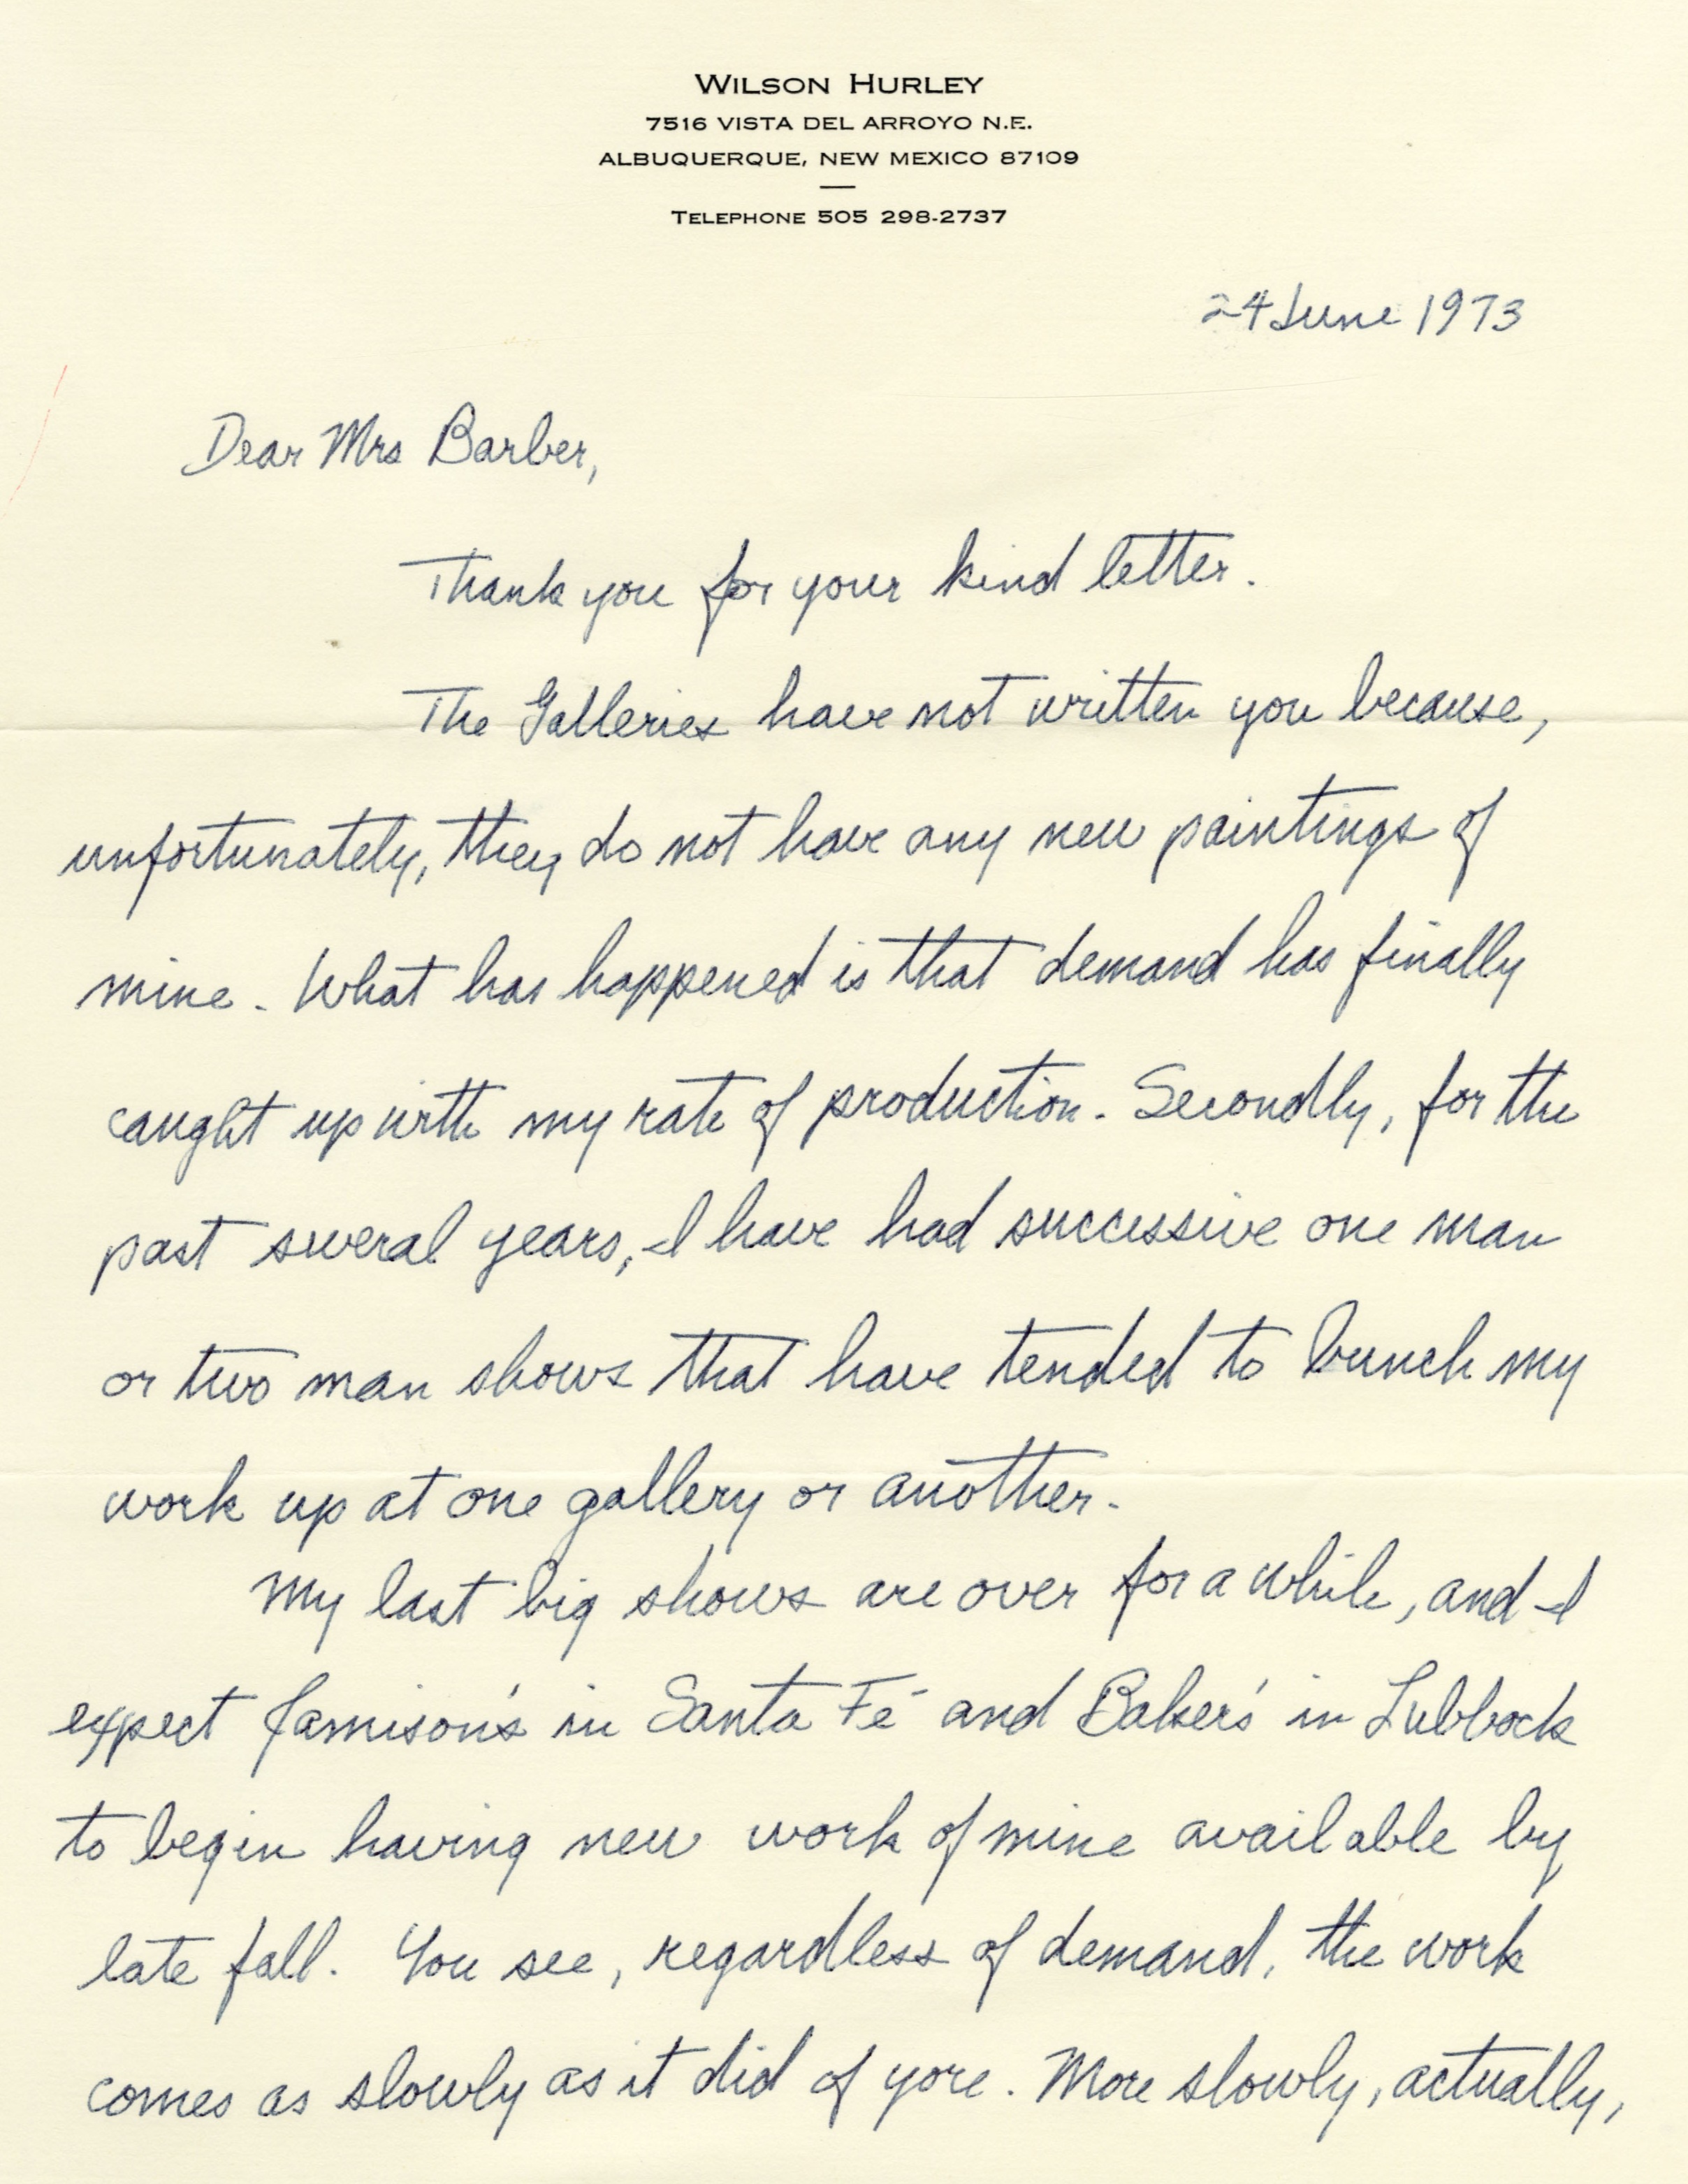 WILSON HURLEY
7516 VISTA DEL ARROYO N.E.
ALBUQUERQUE, NEW MEXICO 87109
TELEPHONE 505 298-2737
24 June 1973
Dear Mrs Barber,
Thank you for your kind letter.
The Galleries have not written you because,
unfortunately, they do not have any new paintings of
mine. What has happened is that demand has finally
caught up with my rate of production. Secondly, for the
past several years, I have had successive one man
or two man shows that have tended to bunch my
work up at one gallery or another.
My last big shows are over for a while, and I
expect Jamison's in Santa Fé and Baker's in Lubbock
to begin having new work of mine available by
late fall. You see, regardless of demand, the work
comes as slowly as it did of yore. More slowly, actually,